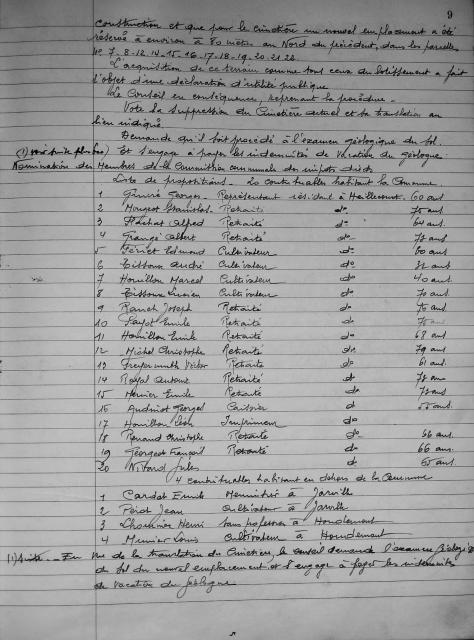 9
construction et que pour le cimetière un nouvel emplacement a été
réservé à environ à 80 mètres au Nord du précédent, dans les parcelles
N° 7-8-12-14-15-16-17-18-19-20-21-22
L'acquisition de ce terrain comme tout ceux du lotissement a fait
l'objet d'une déclaration d'utilité publique
Le Conseil en conséquence, reprenant la procédure -
Vote la suppression du Cimetière actuel et sa translation au
lieu indiqué.
Demande qu'il soit procédé à l'examen géologique du sol.
(1) Et s'engage à payer les indemnités de Vacation du géologue
Nomination des Membres de la Commission communale des impôts directs
Liste de propositions - 20 contribuables habitant la Commune
1 Georges - Représentant résidant à Heillecourt 60 ans
2 Mougeot Stanislas Retraité do 75 ans
3 Alfred Retraité do 64 ans
4 Grangé Albert Retraité do 73 ans
5 Fériet Edmond Cultivateur do 60 ans
6 Tissoux André Cultivateur do 32 ans
7 Houillon Marcel Cultivateur do 40 ans
8 Tissoux Lucien Cultivateur do 70 ans
9 Joseph Retraité do 70 ans
10 Payot Emile Retraité do 75 ans
11 Houillon Emile Retraité do 68 ans
12 Michel Christophe Retraité do 79 ans
13 Freyermuth Victor Retraité do 61 ans
14 Royal Retraité do 72 ans
15 Emile Retraité do 72 ans
16 Audinot Georges d 55 ans
17 Houillon Léon Imprimeur do
18 Renaud Christophe Retraité do 66 ans
19 Georgeot François Retraité do 66 ans
20 Jules d 65 ans
4 contribuables habitant en dehors de la Commune
1 Cardot Emile Menuisier à Jarville
2 Périot Jean Cultivateur à Jarville
3 Lhommée Henri Sans profession à Houdemont
4 Meunier Louis Cultivateur à Houdemont
(1) Suite - En vue de la translation du Cimetière, le conseil demande l'examen géologique
du sol du nouvel emplacement et s'engage à payer les indemnités
de Vacation du géologue